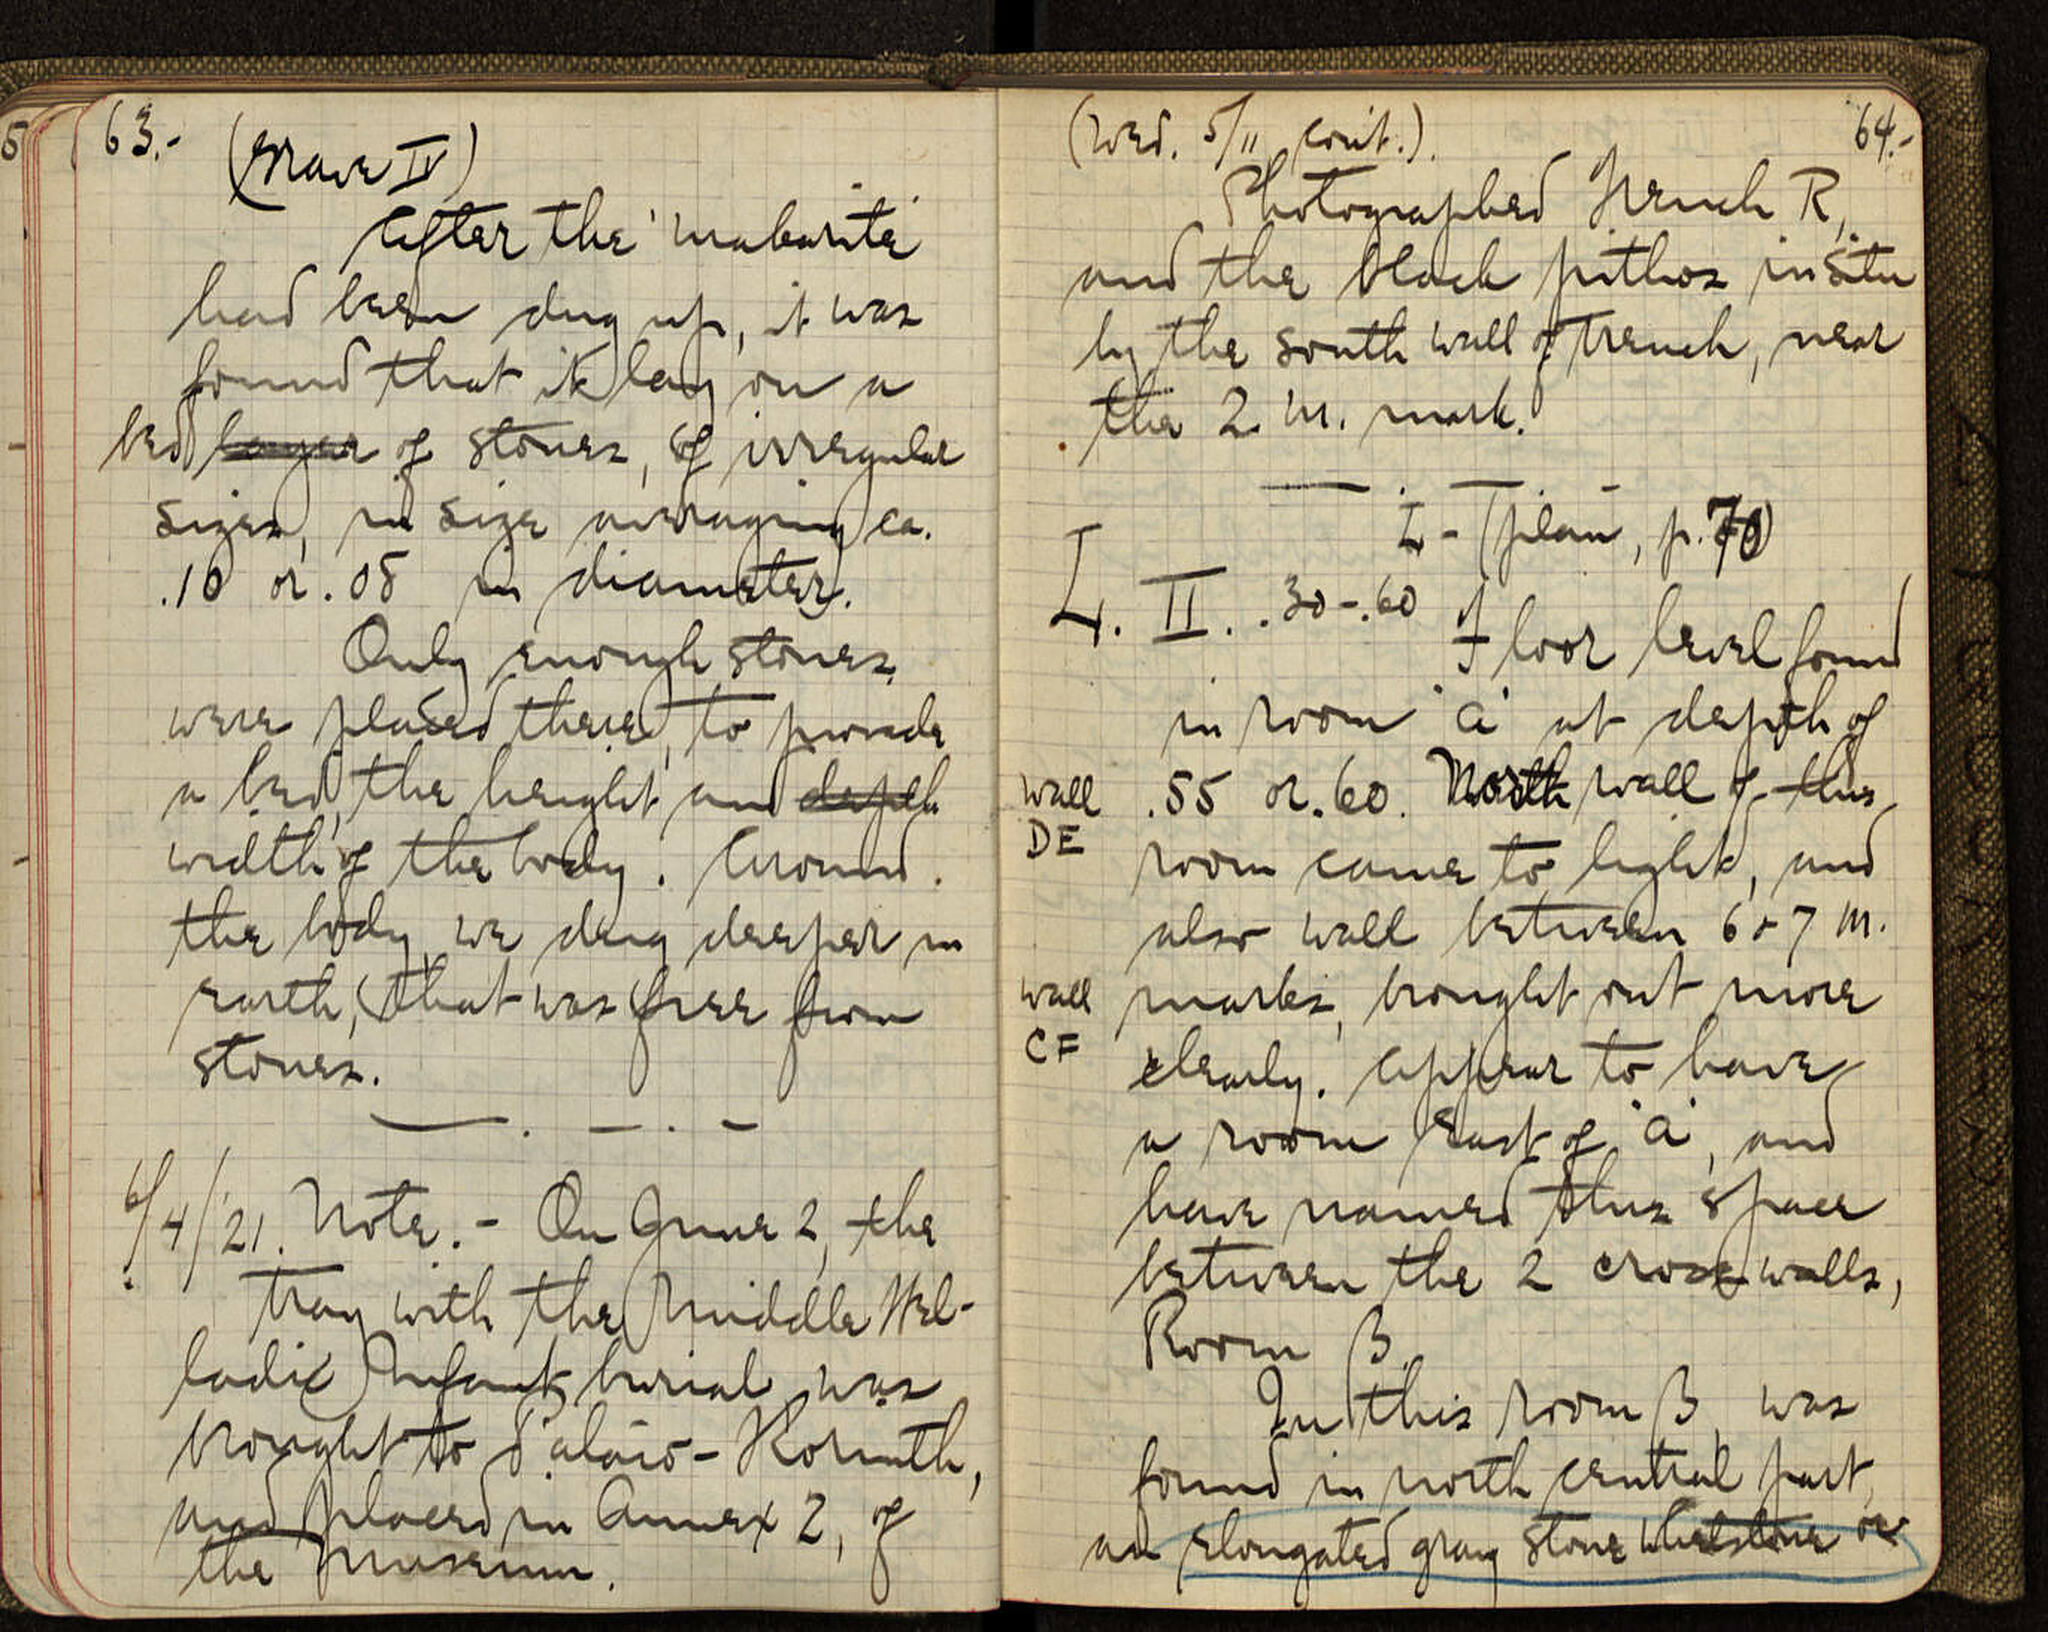 63.-
(Grave IV)
After the 'makarite'
had been dug up, it was
found that it lay on a
bed layer of stones, of irregular
sizes, in size averaging ca.
.10 or .08 in diameter.
Only enough stones
were placed there, to provide
a bed, the height and depth
width of the body. Around
the body we dug deeper in
earth, that was free from
stones.
6/4/'21. Note. - On June 2, the
tray with the Middle Hel-
ladic Infant burial was
brought to Palaio-Korinth,
and placed in Annex 2, of
the Museum.
(Wed. 5/11 cont.).
64.-
Photographed Trench R,
and the black pithos in situ
by the south wall of trench, near
the 2 m. mark.
L - (plan, p. 70)
L. II. .30-.60
Floor level found
in room 'a' at depth of
wall .55 or .60. North wall of this
DE room came to light, and
also wall between 6 + 7 m.
wall marks, brought out more
CF clearly. Appear to have
a room East of 'a', and
have named this space
between the 2 cross walls,
Room β.
In this room β was
found in north central part,
an elongated gray stone whetstone or